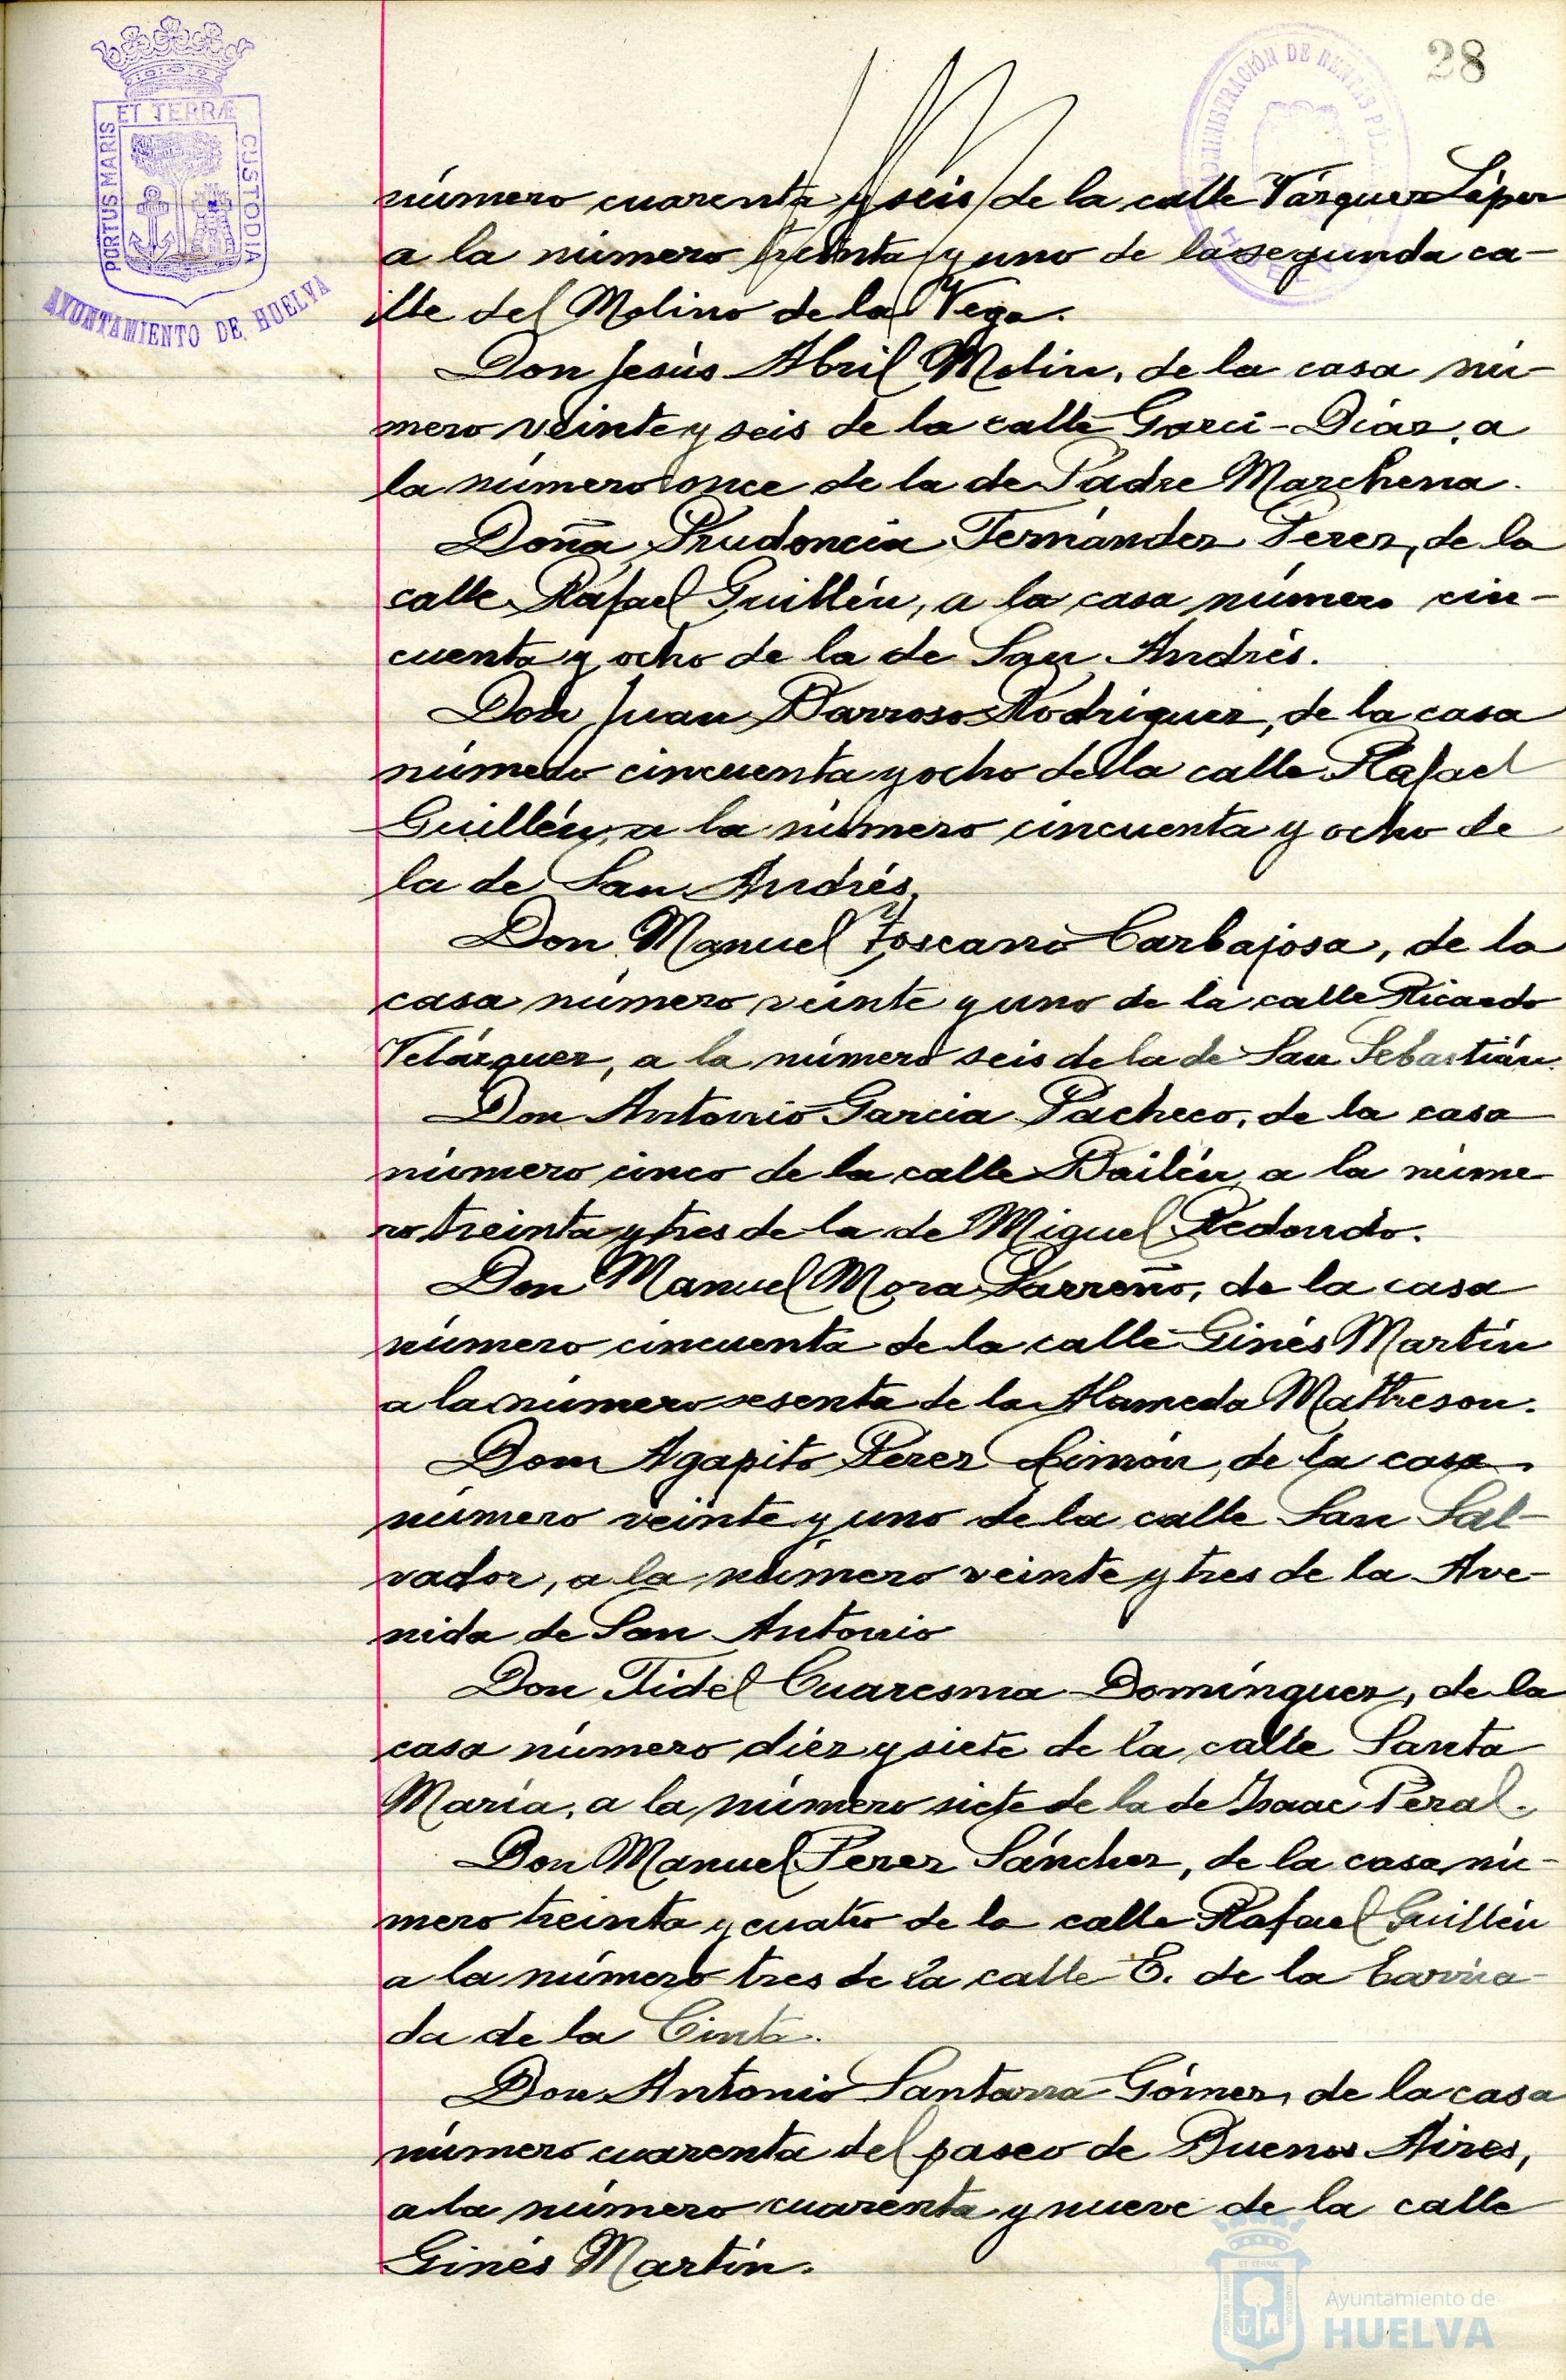 28
ADMINISTRACIÓN DE RENTAS
PORTUS MARIS ET TERRÆ CUSTODIA
AYUNTAMIENTO DE HUELVA
número cuarenta y seis de la calle Vázquez López
a la número treinta y uno de la segunda ca-
lle del Molino de la Vega.
Don Jesús Abril Molin, de la casa nú-
mero veinte y seis de la calle Garci-Díaz, a
la número once de la de Padre Marchena.
Doña Prudencia Fernández Perez, de la
calle Rafael Guillén, a la casa número cin-
cuenta y ocho de la de San Andrés.
Don Juan Barroso Rodríguez, de la casa
número cincuenta y ocho de la calle Rafael
Guillén, a la número cincuenta y ocho de
la de San Andrés,
Don Manuel Toscano Carbajosa, de la
casa número veinte y uno de la calle Ricardo
Velázquez, a la número seis de la de San Sebastián.
Don Antonio Garcia Pacheco, de la casa
número cinco de la calle Bailén a la núme
ro treinta y tres de la de Miguel Redondo.
Don Manuel Mora, de la casa
número cincuenta de la calle Ginés Martín
a la número sesenta de la Alameda Matheson.
Don Agapito Perez Limón, de la casa
número veinte y uno de la calle San Sal-
vador, a la número veinte y tres de la Ave-
nida de San Antonio
Don Fidel Cuaresma Domínguez, de la
casa número diez y siete de la calle Santa
María, a la número siete de la de Isaac Peral.
Don Manuel Perez Sánchez, de la casa nú-
mero treinta y cuatro de la calle Rafael Guillén
a la número tres de la calle E. de la barria-
da de la Cinta.
Don Antonio Santana Gómez, de la casa
número cuarenta del paseo de Buenos Aires,
a la número cuarenta y nueve de la calle
Ginés Martín.
Ayuntamiento de
HUELVA